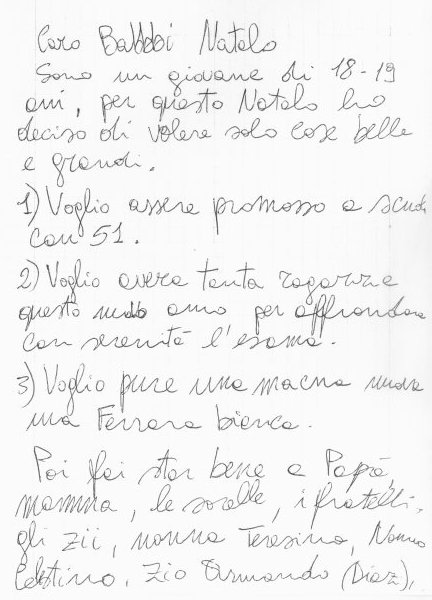 Caro Babbbi Natalo
Sono un giovane di 18-19
ani, per questo Natalo ho
deciso di volere solo cose belle
e grandi.
1) Voglio assere promosso a scuola
con 51.
2) Voglio avera tanta ragazze
questo anno per affrondare
con serenità l'esama.
3) Voglio pure una macna nuova
una Ferrara bianca.
Poi fai star bene a Papà,
mamma, le soralle, i fratelli,
gli zii, nonna Teresina, Nonno
Celestino, Zio Armando (Diaz),